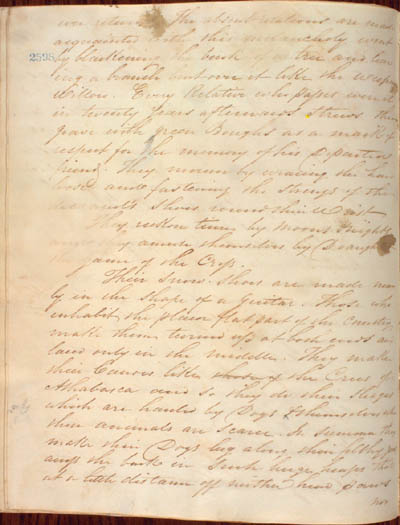 ever return. The absent relations are made
acquainted with this melancholy event
by blackening the bark of a tree and leav
2595
ing a branch cut over it like the weeping
Willow. Every Relative who passes even if
in twenty years afterwards strews the
grave with green Boughs as a mark of
respect for the memory of his departed
friend. They mourn by wearing the hair
loose and fastening the strings of the
deceased's Shoes round their Waist.
They reckon time by Moons & Nights
and they amuse themselves by Draughts
the game of the Cross.
Their Snow Shoes are made
ly in the shape of a Guitar. Those who
inhabit the flat part of the Country
make them turned up at both ends and
laced only in the middle. They make
their Canoes like those of the Crees of
Athabasca and so they do their Sledges
which are hauled by Dogs & themselves when
these animals are scarce. In summer they
make their Dogs lug along their filthy
upon the back in such huge heaps that
at a little distance off neither head paws
nor